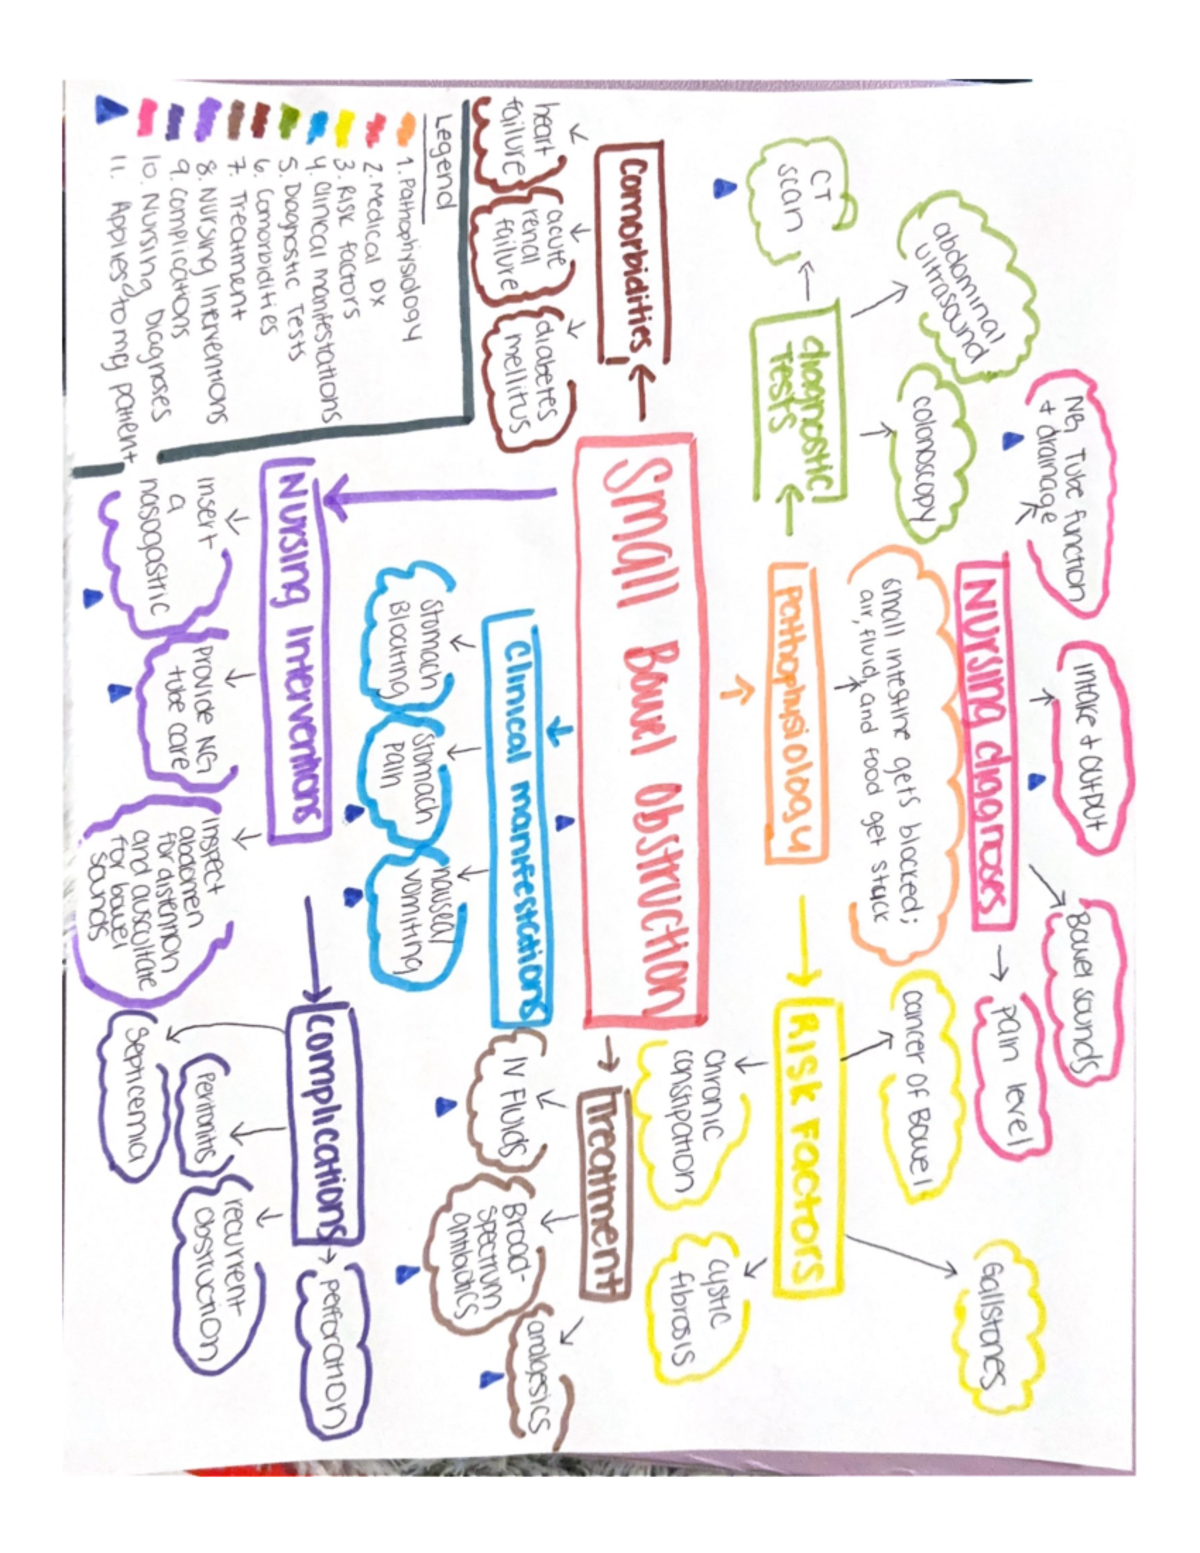 NG Tube function
+ drainage
Intake + output
Bowel sounds
pain level
Nursing diagnoses
abdominal
ultrasound
colonoscopy
CT
scan
diagnostic
Tests
small intestine gets blocked;
air, fluid, and food get stuck
Pathophysiology
cancer of Bowel
Gallstones
Risk Factors
chronic
constipation
cystic
fibrosis
Comorbidities
heart
failure
acute
renal
failure
diabetes
mellitus
Small Bowel Obstruction
Treatment
IV Fluids
Broad-
spectrum
antibiotics
analgesics
Clinical manifestations
Stomach
Bloating
Stomach
pain
nausea/
vomiting
Legend
1. Pathophysiology
2. Medical Dx
3. Risk factors
4. Clinical manifestations
5. Diagnostic Tests
6. Comorbidities
7. Treatment
8. Nursing Interventions
9. Complications
10. Nursing Diagnoses
11. Applies to my patient
Nursing Interventions
insert
a
nasogastric
provide NG
tube care
inspect
abdomen
for distention
and auscultate
for bowel
sounds
Complications
Septicemia
Peritonitis
recurrent
obstruction
Perforation